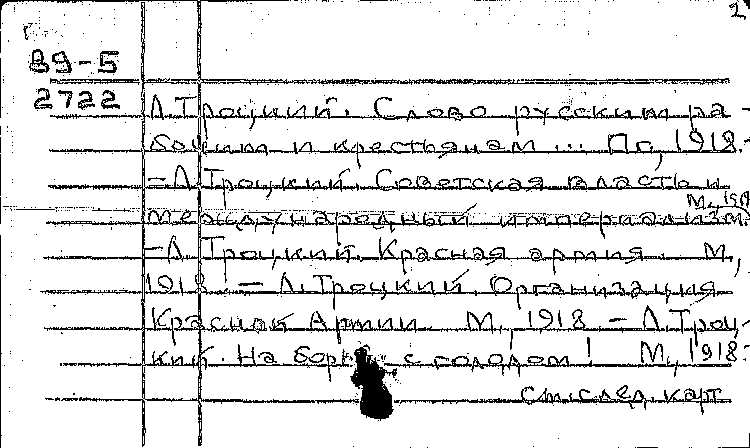 2
89-5
2722
Л.Троцкий. Слово русским ра-
бочим и крестьянам ... Пг, 1918.-
-Л.Троцкий. Советская власть и
международный империализм. М., 1918
-Л. Троцкий. Красная армия. М.,
1918. - Л.Троцкий. Организация
Красной Армии. М., 1918 - Л.Троц-
кий. На борьбу с голодом! М., 1918.
см. след. карт